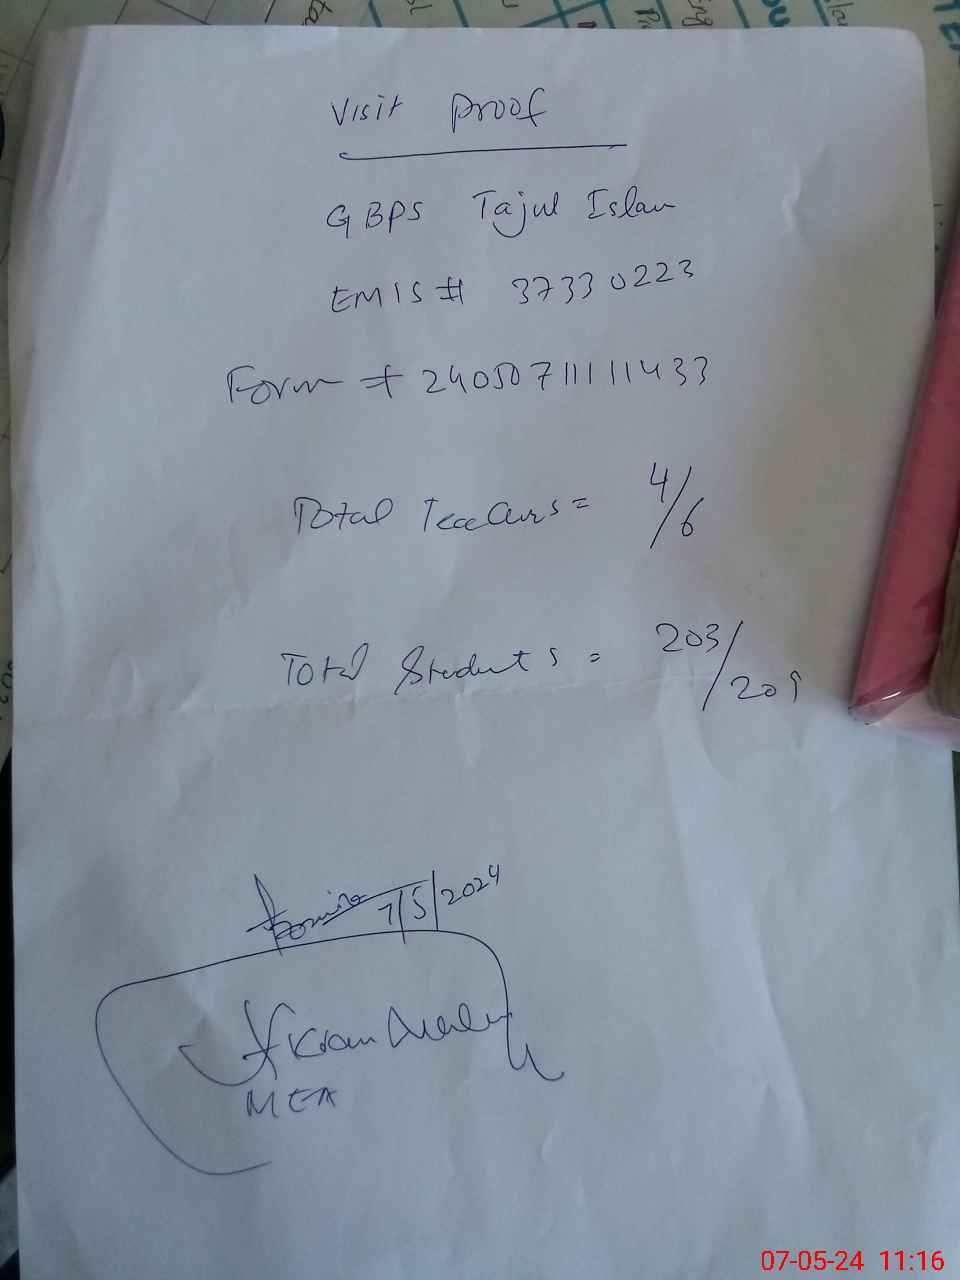 Visit Proof
GBPS Tajul Islam
EMIS # 37330223
Form # 24050711111433
Total Teachers = 4/6
Total Students = 203/209
7/5/2024
Ikram
MEA
07-05-24 11:16